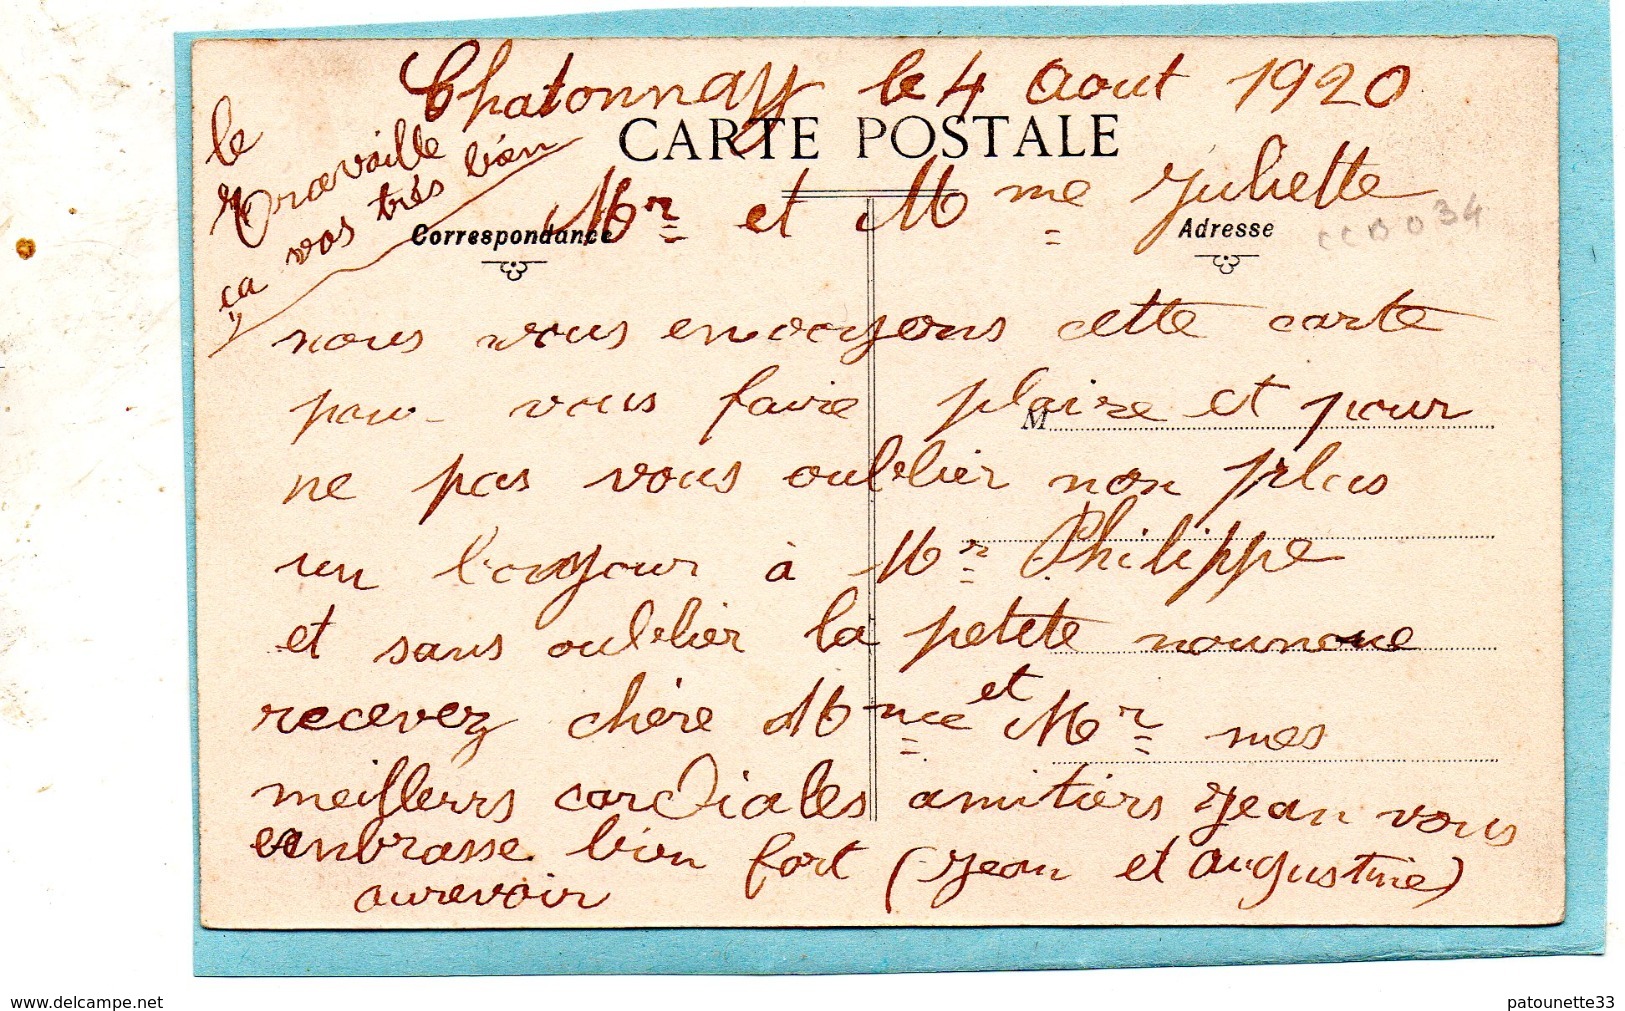 Chatonnay le 4 Aout 1920
CARTE POSTALE
le
Travaille
ça vas très bien
Mr et Mme Juliette
Correspondance
Adresse
CCB034
nous vous envoyons cette carte
pour vous faire plaire et pour
M
ne pas vous oublier non plus
un bonjour à Mr Philippe
et sans oublier la petite nounoue
recevez chère Mme et Mr mes
meillerrs cordiales amitiers Jean vous
embrasse bien fort (Jean et Augustine)
aurevoir
www.delcampe.net
patounette33